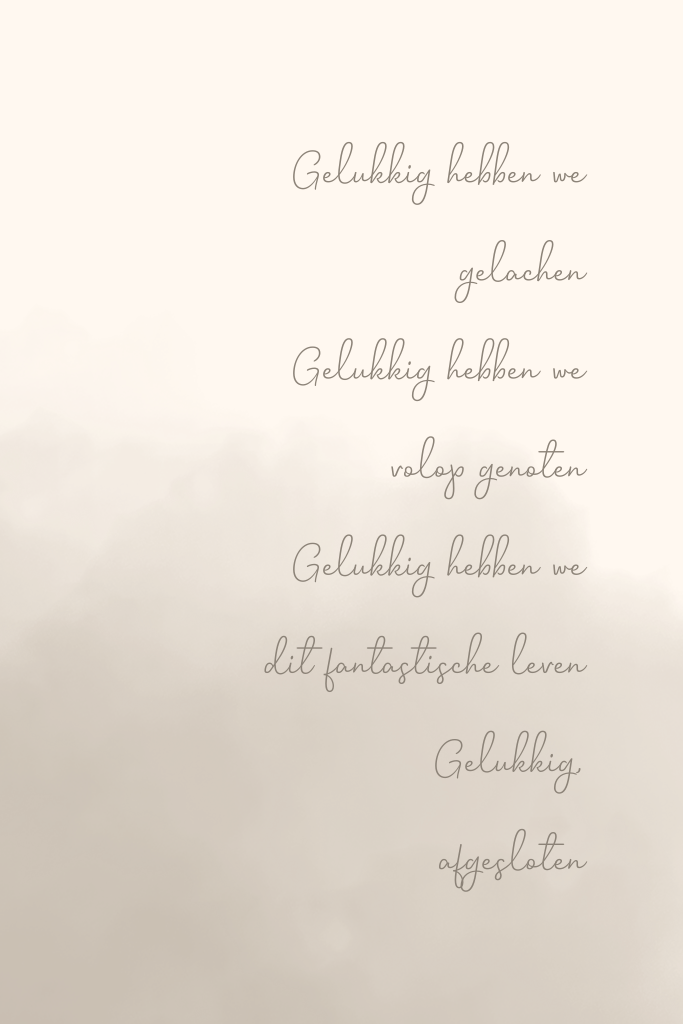 Gelukkig hebben we
gelachen
Gelukkig hebben we
volop genoten
Gelukkig hebben we
dit fantastische leven
Gelukkig,
afgesloten